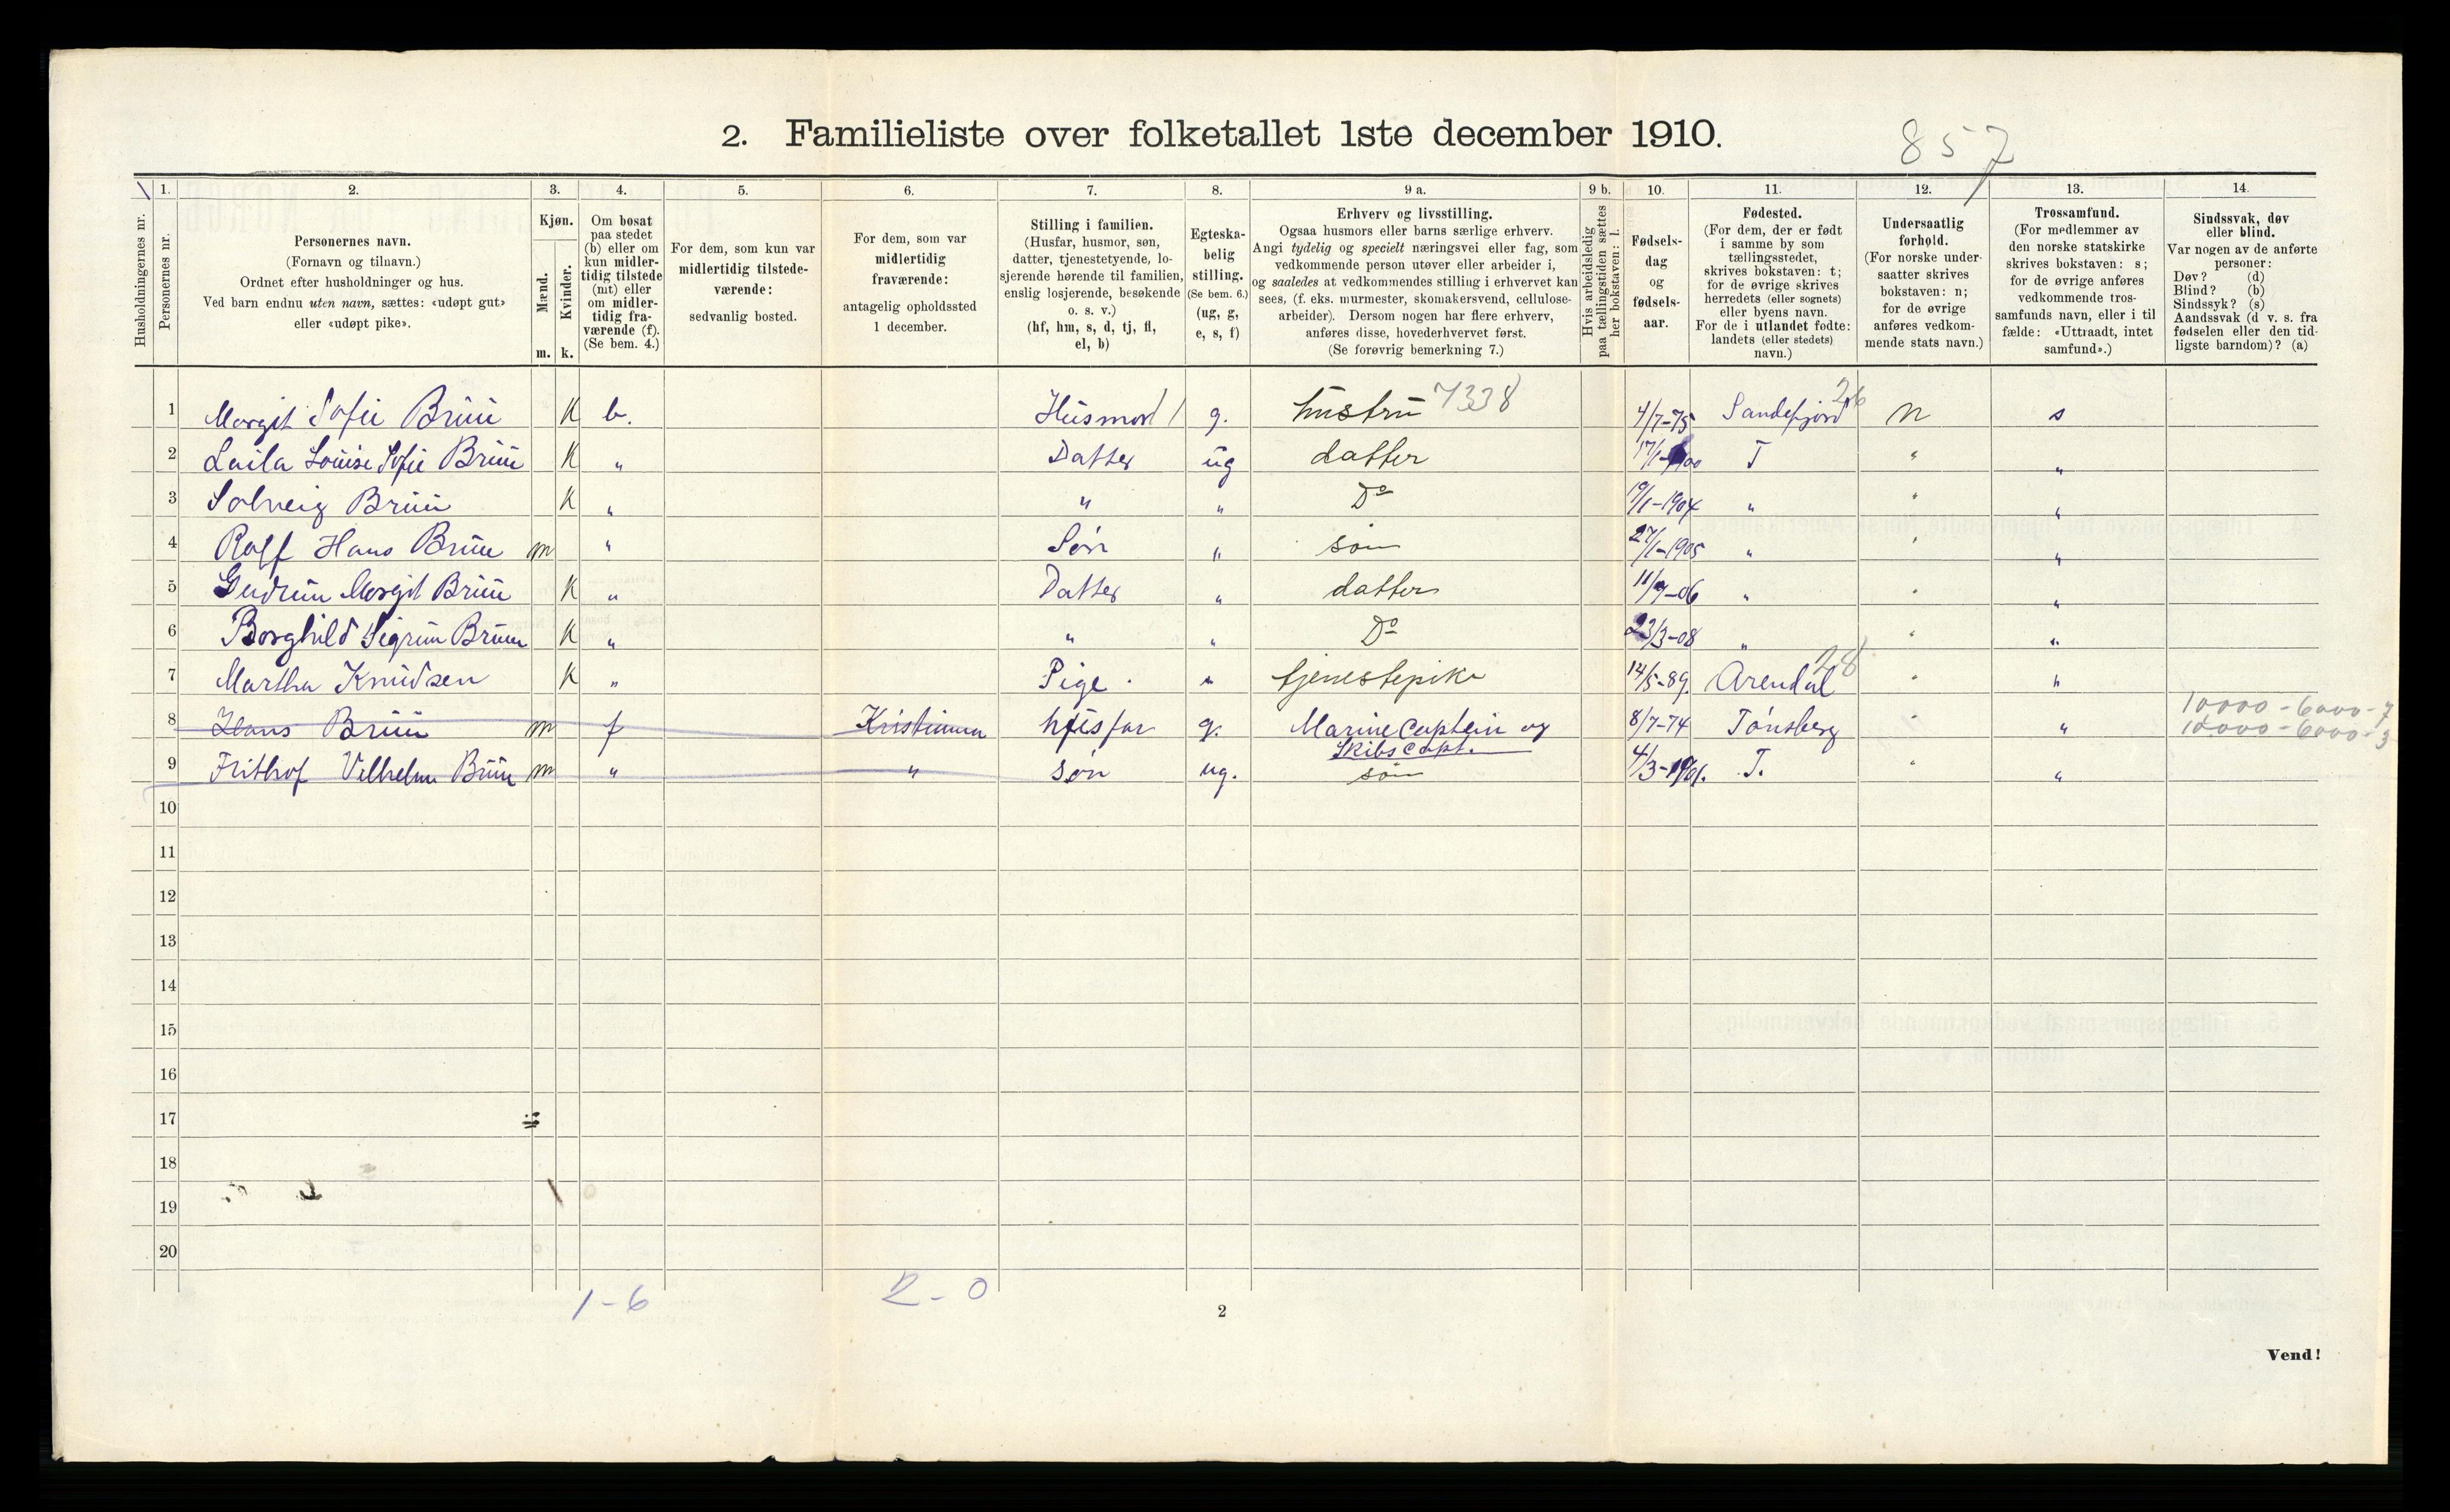 2. Familieliste over folketallet 1ste december 1910.
857
1. 2. 3. 4. 5. 6. 7. 8. 9 a. 9 b. 10. 11. 12. 13. 14.
Husholdningernes nr.
Personernes nr.
Personernes navn.
(Fornavn og tilnavn.)
Ordnet efter husholdninger og hus.
Ved barn endnu uten navn, sættes: «udøpt gut»
eller «udøpt pike».
Kjøn.
Mænd.
Kvinder.
m. k.
Om bosat
paa stedet
(b) eller om
kun midler-
tidig tilstede
(mt) eller
om midler-
tidig fra-
værende (f).
(Se bem. 4.)
For dem, som kun var
midlertidig tilstede-
værende:
sedvanlig bosted.
For dem, som var
midlertidig
fraværende:
antagelig opholdssted
1 december.
Stilling i familien.
(Husfar, husmor, søn,
datter, tjenestetyende, lo-
sjerende hørende til familien,
enslig losjerende, besøkende
o. s. v.)
(hf, hm, s, d, tj, fl,
el, b)
Egteska-
belig
stilling.
(Se bem. 6.)
(ug, g,
e, s, f)
Erhverv og livsstilling.
Ogsaa husmors eller barns særlige erhverv.
Angi tydelig og specielt næringsvei eller fag, som
vedkommende person utøver eller arbeider i,
og saaledes at vedkommendes stilling i erhvervet kan
sees, (f. eks. murmester, skomakersvend, cellulose-
arbeider). Dersom nogen har flere erhverv,
anføres disse, hovederhvervet først.
(Se forøvrig bemerkning 7.)
Hvis arbeidsledig
paa tællingstiden sættes
her bokstaven: l.
Fødsels-
dag
og
fødsels-
aar.
Fødested.
(For dem, der er født
i samme by som
tællingsstedet,
skrives bokstaven: t;
for de øvrige skrives
herredets (eller sognets)
eller byens navn.
For de i utlandet fødte:
landets (eller stedets)
navn.)
Undersaatlig
forhold.
(For norske under-
saatter skrives
bokstaven: n;
for de øvrige
anføres vedkom-
mende stats navn.)
Trossamfund.
(For medlemmer av
den norske statskirke
skrives bokstaven: s;
for de øvrige anføres
vedkommende tros-
samfunds navn, eller i til
fælde: «Uttraadt, intet
samfund».)
Sindssvak, døv
eller blind.
Var nogen av de anførte
personer:
Døv? (d)
Blind? (b)
Sindssyk? (s)
Aandssvak (d v. s. fra
fødselen eller den tid-
ligste barndom)? (a)
1 Margit Sofie Bruu K b. Husmor / g. hustru 7338 4/7-75 Sandefjord 26 n s
2 Laila Louise Sofie Bruu K " Datter ug datter 17/1-1900 T " "
3 Solveig Bruu K " " " Do 19/1-1904 " " "
4 Rolf Hans Bruu m " Søn " søn 27/1-1905 " " "
5 Gudrun Margit Bruu K " Datter " datter 11/9-06 " " "
6 Borghild Sigrun Bruun K " " " Do 23/3-08 " " "
7 Martha Knudsen K " Pige " tjenestepike 14/5-89. Arendal 28 " "
8 Hans Bruu m f Kristiania husfar g. Marine Captein og Skibscapt. 8/7-74 Tønsberg " " 10000-6000-7
10000-6000-3
9 Frithof Vilhelm Bruu m " " søn ug. søn 4/3-1901. T. " "
10
11
12
13
14
15
16
17
18
19
20
1-6 2-0
2
Vend!